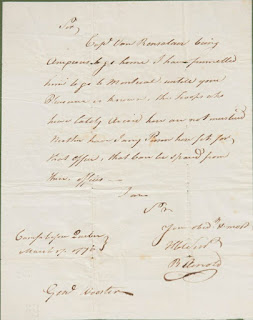 Sir
Capt. Van Rensalaer being
Anxious to go home I have permitted
him to go to Montreal untile your
Pleasure is known, the Troops who
have Lately Arived here are not mustered
Neither have I any Person here fit for
that office, that Can be spared from
their offices
I am
Sir
Your Obedt Humbl
B Arnold
Camp before Quebec
March 1776
Genl Wooster